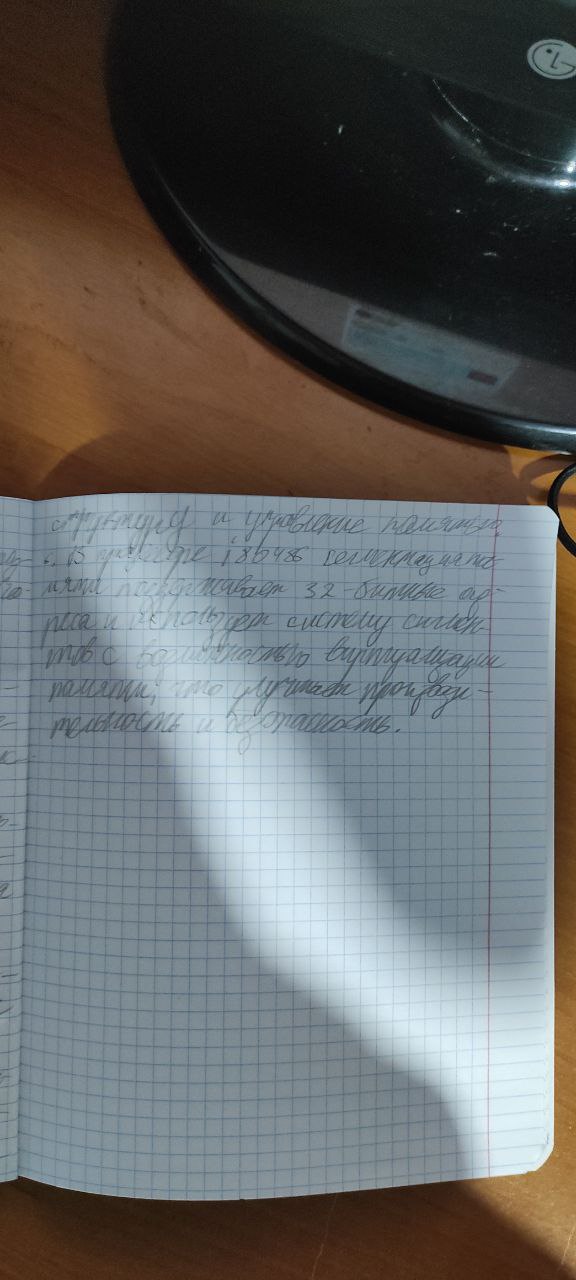 LG
структуру и управление памятью.
с. В процессоре i80486 сегментация па-
мяти поддерживает 32-битные ад-
реса и использует систему сегмен-
тов с возможностью виртуализации
памяти, что улучшает произво-
тельность и безопасность.